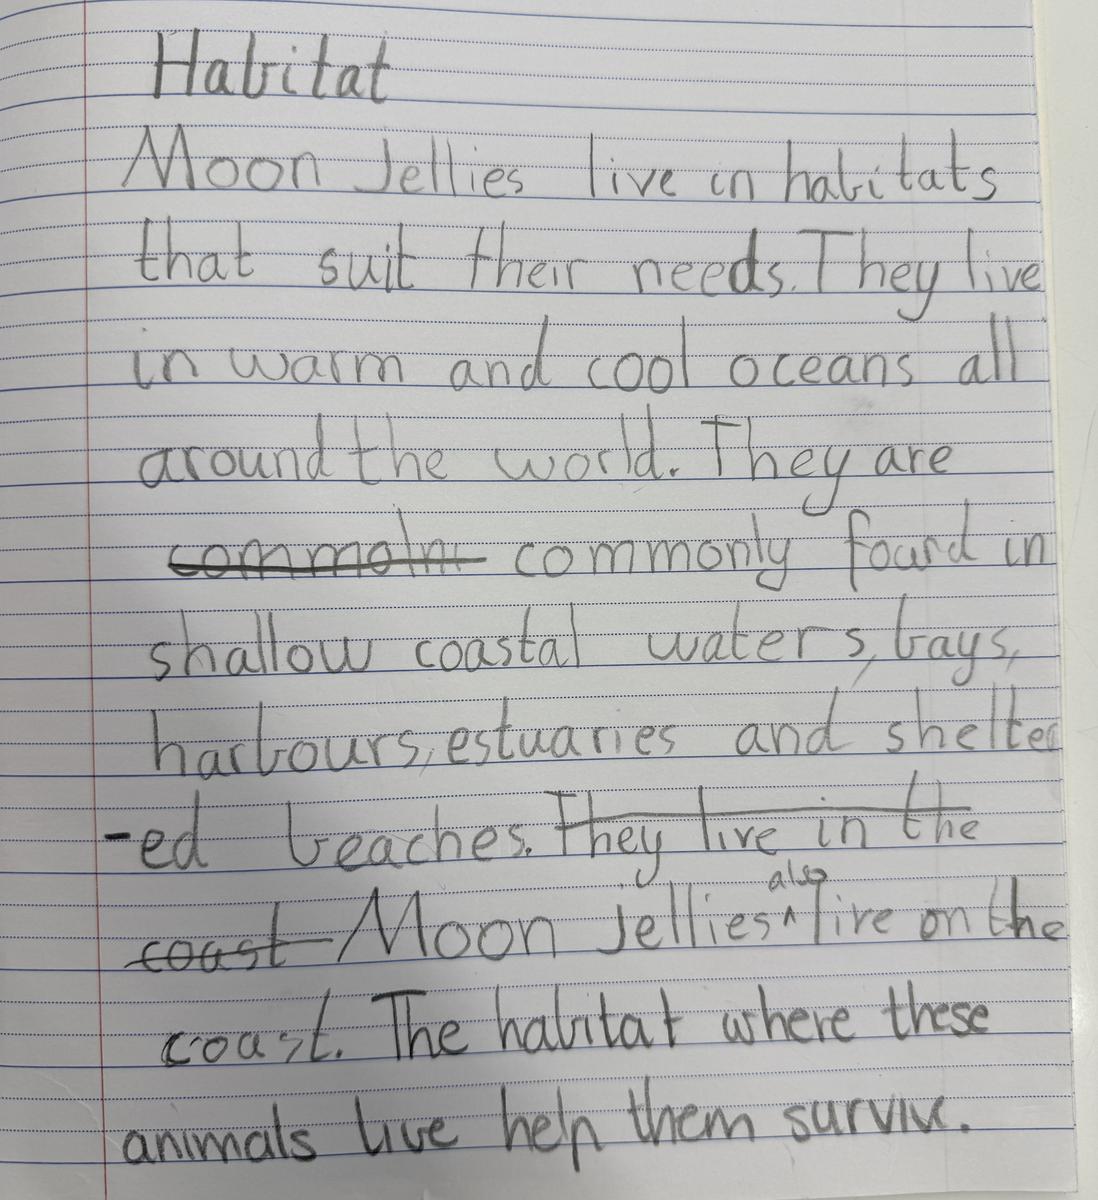 Habitat
Moon Jellies live in habitats
that suit their needs. They live
in warm and cool oceans all
around the world. They are
commoln commonly found in
shallow coastal waters, bays,
harbours, estuaries and shelter
-ed beaches. They live in the
coast Moon jellies ^ also live on the
coast. The habitat where these
animals live help them survive.